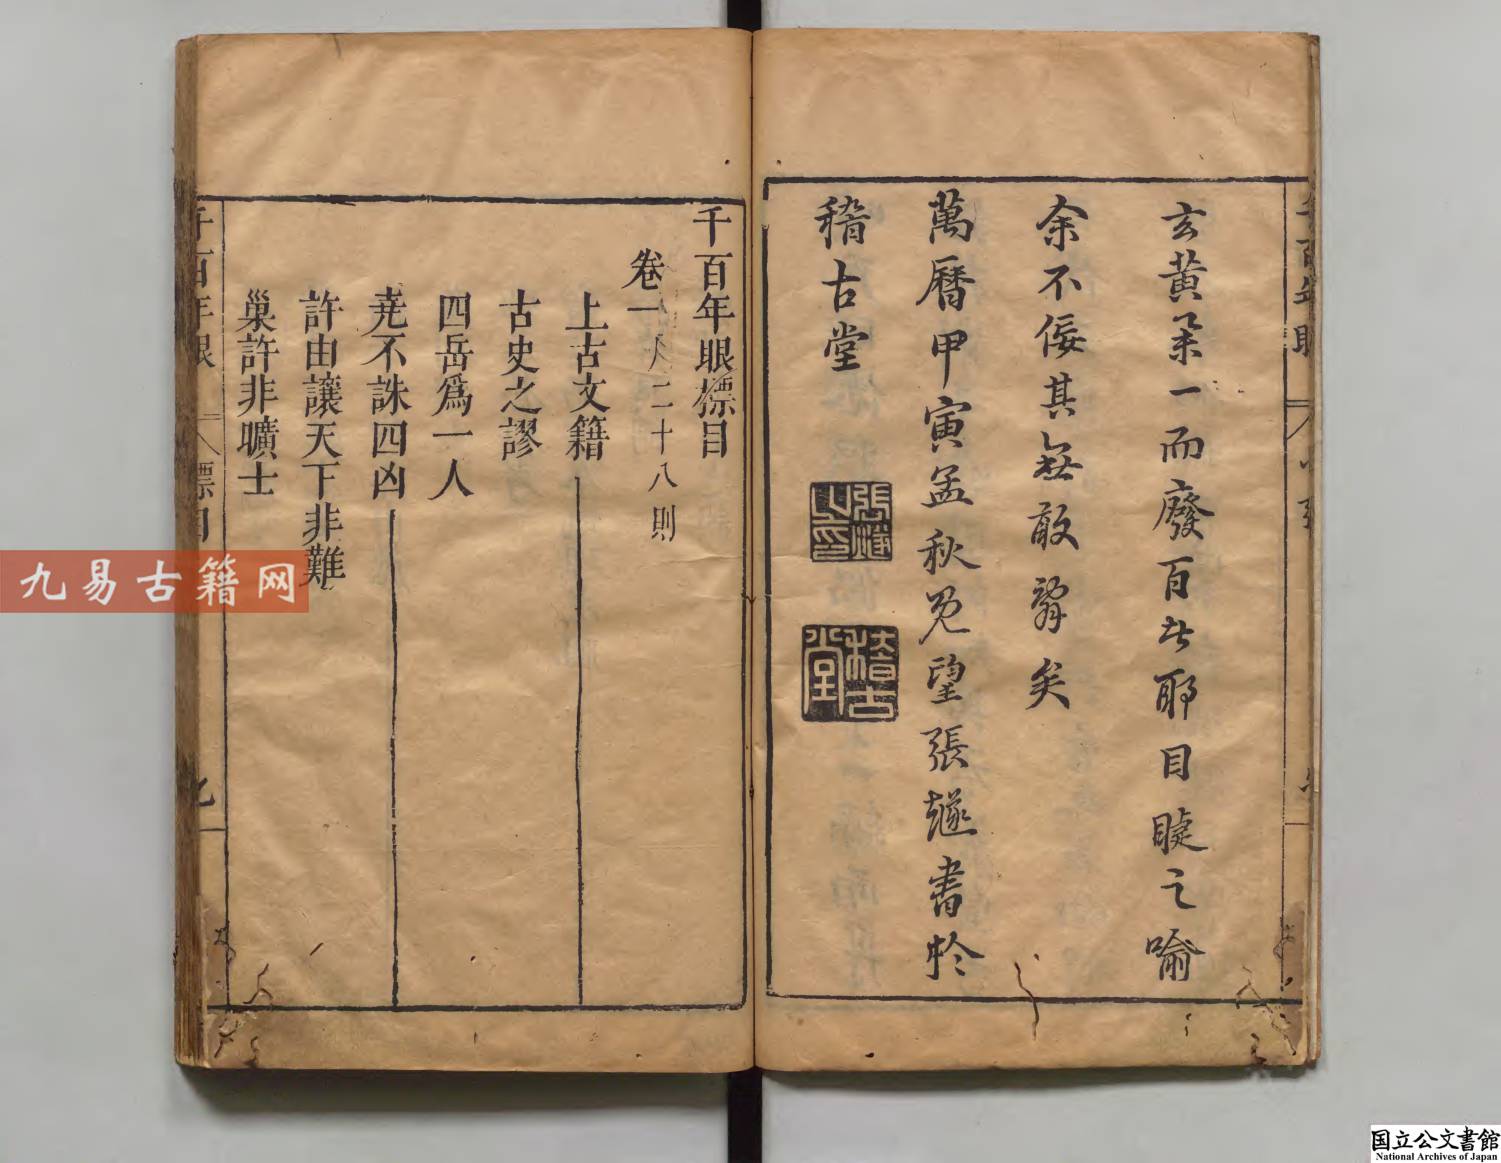 玄黃擧一而廢百者耶目睫之喻
余不佞其無敢辭矣
萬曆甲寅孟秋既望張燧書於
稽古堂
張燧之印
稽古堂
千百年眼標目
卷一 二十八則
上古文籍
古史之謬
四岳爲一人
堯不誅四凶
許由讓天下非難
巢許非曠士
千百年眼
標目
九易古籍网
国立公文書館
National Archives of Japan